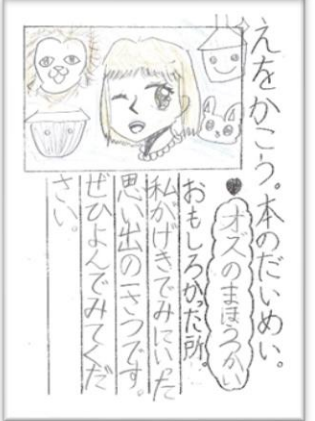 えをかこう。本のだいめい。
オズのまほうつかい
おもしろかった所。
私がげきでみにいった
思い出の一さつです。
ぜひよんでみてくだ
さい。